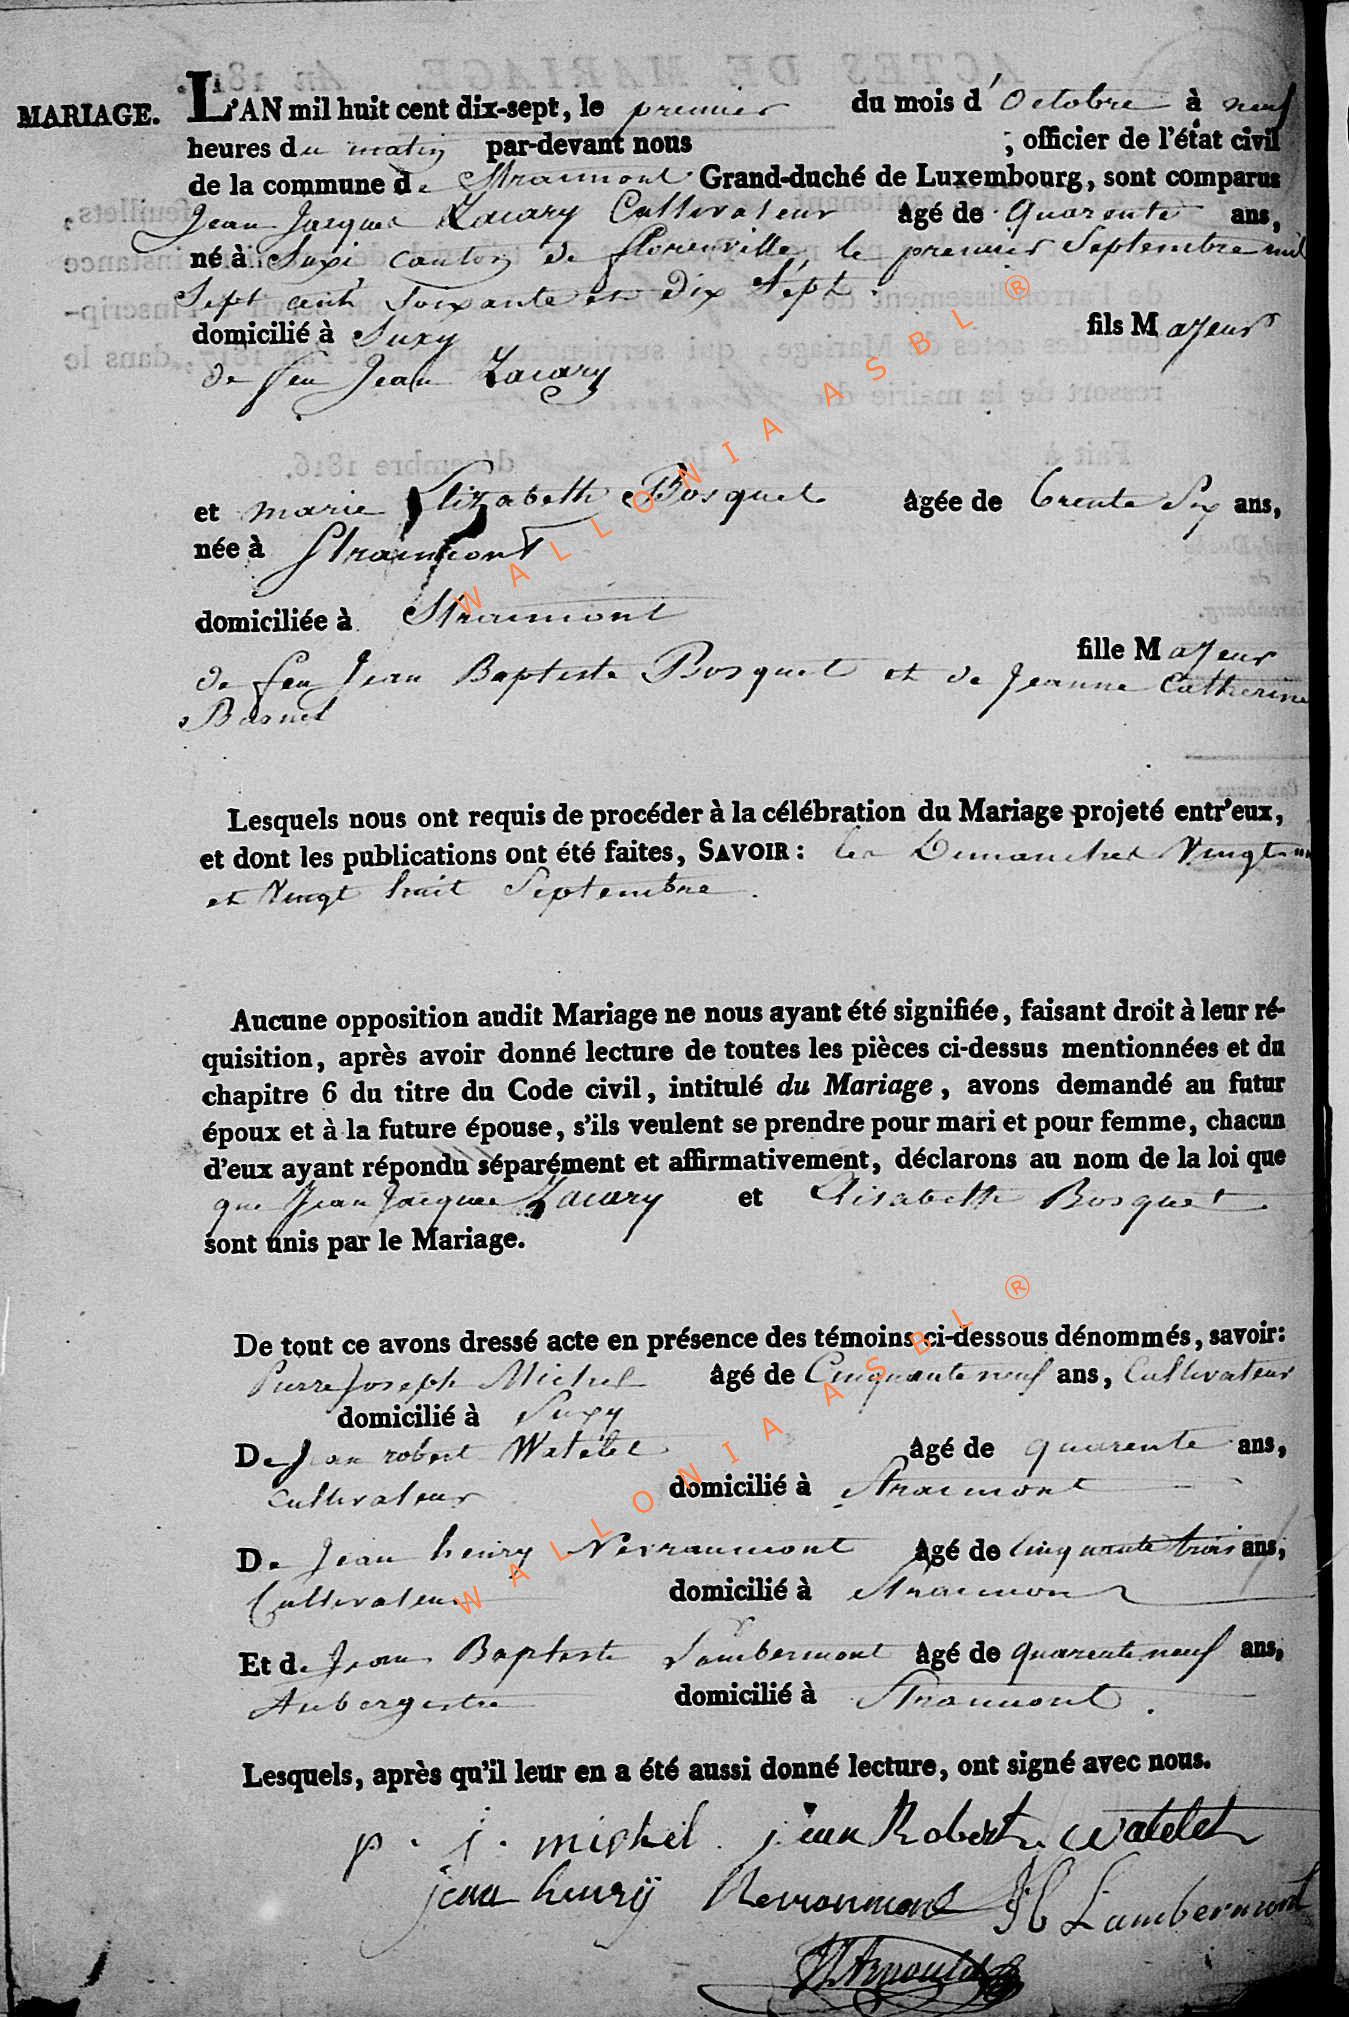 MARIAGE. L'AN mil huit cent dix-sept, le premier du mois d'Octobre à neuf
heures du matin par-devant nous ; officier de l'état civil
de la commune de Straimont Grand-duché de Luxembourg, sont comparus
Jean Jacques Zacary Cultivateur âgé de Quarente ans,
né à Suxi canton de florenville, le premier Septembre mil
Sept cent Soixante et Dix Sept.
domicilié à Suxy fils Majeur
de feu Jean Zacary
et marie Elizabeth Bosquet âgée de trente Six ans,
née à Straimont
domiciliée à Straimont
fille Majeur
de feu Jean Baptiste Bosquet et de Jeanne Catherine
Lesquels nous ont requis de procéder à la célébration du Mariage projeté entr'eux,
et dont les publications ont été faites, SAVOIR : les Dimanches Vingt un
et Vingt huit Septembre.
Aucune opposition audit Mariage ne nous ayant été signifiée, faisant droit à leur ré-
quisition, après avoir donné lecture de toutes les pièces ci-dessus mentionnées et du
chapitre 6 du titre du Code civil, intitulé du Mariage, avons demandé au futur
époux et à la future épouse, s'ils veulent se prendre pour mari et pour femme, chacun
d'eux ayant répondu séparément et affirmativement, déclarons au nom de la loi que
que Jean Jacques Zacary et Elisabeth Bosquet
sont unis par le Mariage.
De tout ce avons dressé acte en présence des témoins ci-dessous dénommés, savoir:
Pierre Joseph Michel âgé de Cinquante neuf ans, Cultivateur
domicilié à Suxy
De Jean robert Watelet âgé de quarente ans,
Cultivateur domicilié à Straimont
De Jean henry Nevraumont âgé de Cinquante trois ans,
Cultivateur domicilié à Straimont
Et de Jean Baptiste Lambermont âgé de quarente neuf ans,
Aubergiste domicilié à Straimont.
Lesquels, après qu'il leur en a été aussi donné lecture, ont signé avec nous.
p. j. michel jean Robert watelet
jean henry Nevraumont Lambermont
Arnould
WALLONIA ASBL ®
WALLONIA ASBL ®